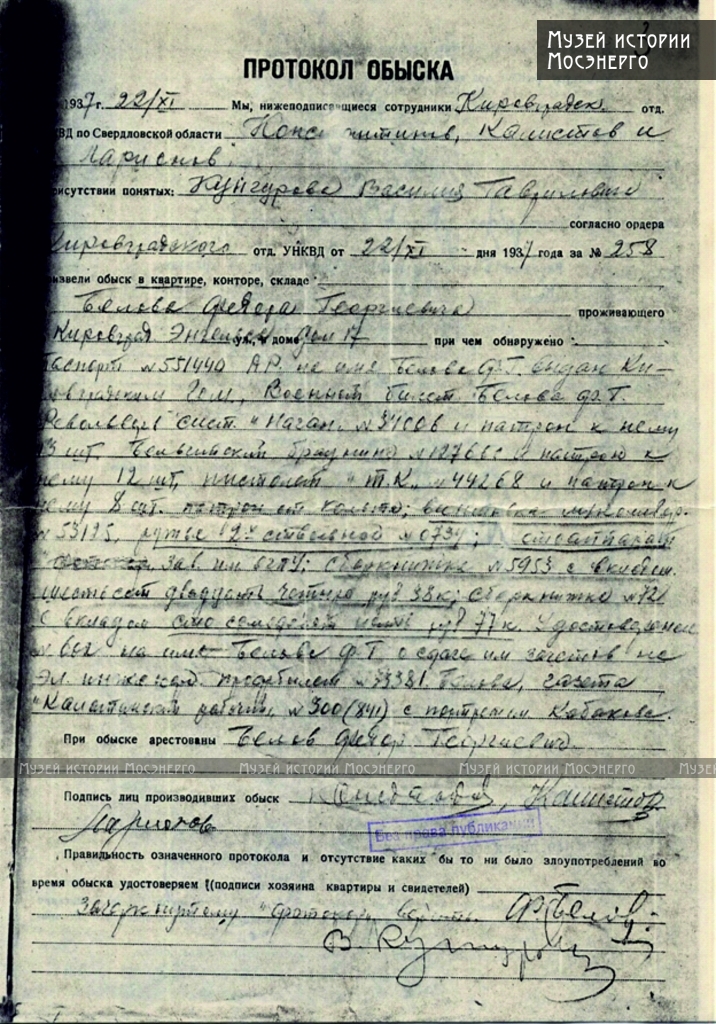 3
Музей истории
Мосэнерго
ПРОТОКОЛ ОБЫСКА
1937 г. 22/XI Мы, нижеподписавшиеся сотрудники Кировградск. отд.
КВД по Свердловской области Константинов, Калистов и
Ларионов
рисутствии понятых: Кунгурова Василия Гавриловича
согласно ордера
Кировградского отд. УНКВД от 22/XI дня 1937 года за № 258
извели обыск в квартире, конторе, складе
Белова Федора Георгиевича проживающего
Кировград Энгельса ул., в доме дом 17 при чем обнаружено:
Паспорт № 551440 А.Р. на имя Белова Ф.Г. выдан Ки-
ровградским Военный билет Белова Ф.Г.
Револьвер сист. "Наган" и патрон к нему
13 шт. Бельгийский браунинг и патрон к
нему 12 шт, пистолет "Т.К." № 44268 и патрон к
нему 8 шт. патрон от кольта; винтовка
№ 53135, ружье 2х ствольное № 0734; фотоаппарат
зав. им ОГПУ; сберкнижка № 5953 с вкладом
шестьсот двадцать четыре руб 38 к; сберкнижка № 721
с вкладом сто семьдесят руб 77 к. Удостоверение
на имя Белова Ф.Г. о сдаче им зачетов на
Эл. профбилет Белова, газета
"Калатинский рабочий" № 300 (841) с портретом Кабакова.
При обыске арестованы Белов Федор Георгиевич
Музей истории Мосэнерго Музей истории Мосэнерго Музей истории Мосэнерго
Подпись лиц производивших обыск Калистов
Ларионов
Без права публикации
Правильность означенного протокола и отсутствие каких бы то ни было злоупотреблений во
время обыска удостоверяем (подписи хозяина квартиры и свидетелей)
Зачеркнутому верить. Ф Белов
В. Кунгуров